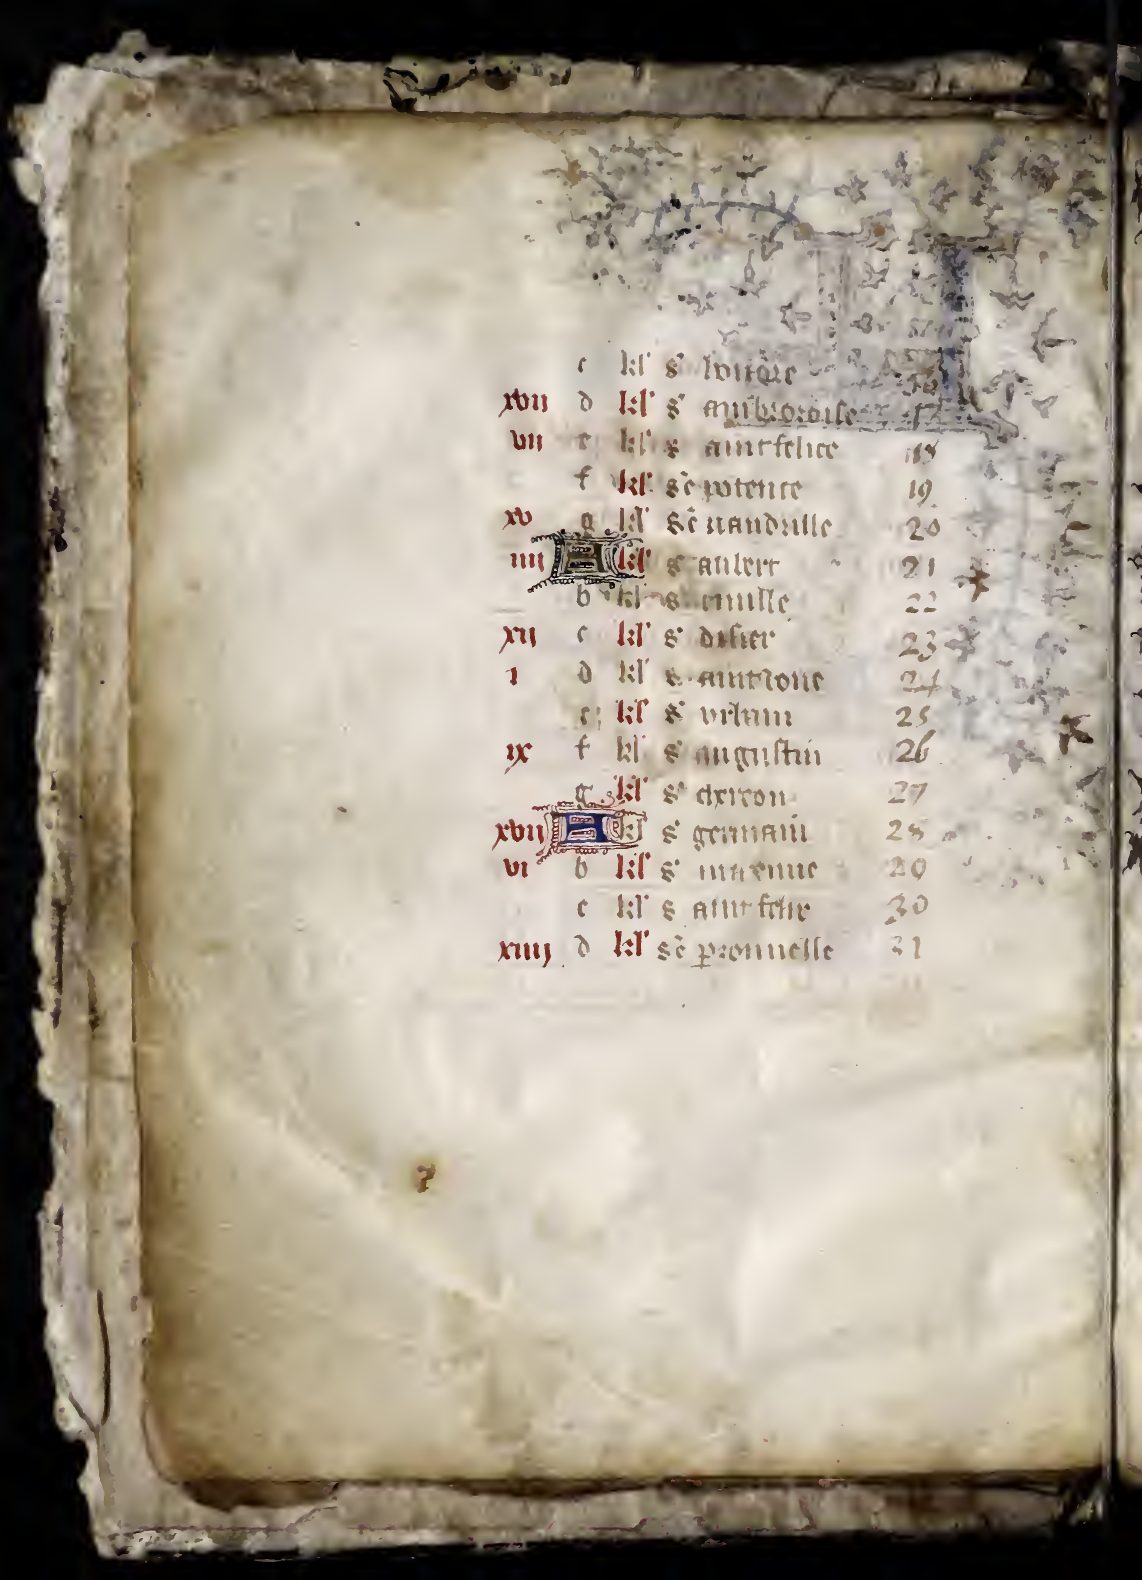 c kl' s'
xvii d kl' s'
vii e kl' s aint felice 18
f kl' s̃e potence 19
xv g kl' s̃e 20
iiii A kl' s' aubert 21
b kl' s' emille 22
xii c kl' s' disier 23
i d kl' s 24
e kl' s' urbain 25
ix f kl' s' augustin 26
g kl' s' 27
xvii A kl s' germain 28
vi b kl' s' maxime 29
c kl' s aint felix 30
xiiii d kl' s̃e pronnelle 31